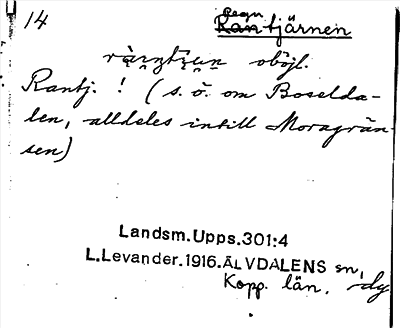 14
Regn
Rantjärnen
oböjl.
Rantj. ! (s. ö. om Boselda-
len, alldeles intill Moragrän-
sen)
Landsm.Upps.301:4
L.Levander.1916.ÄLVDALENS sn,
Kopp. län. dy